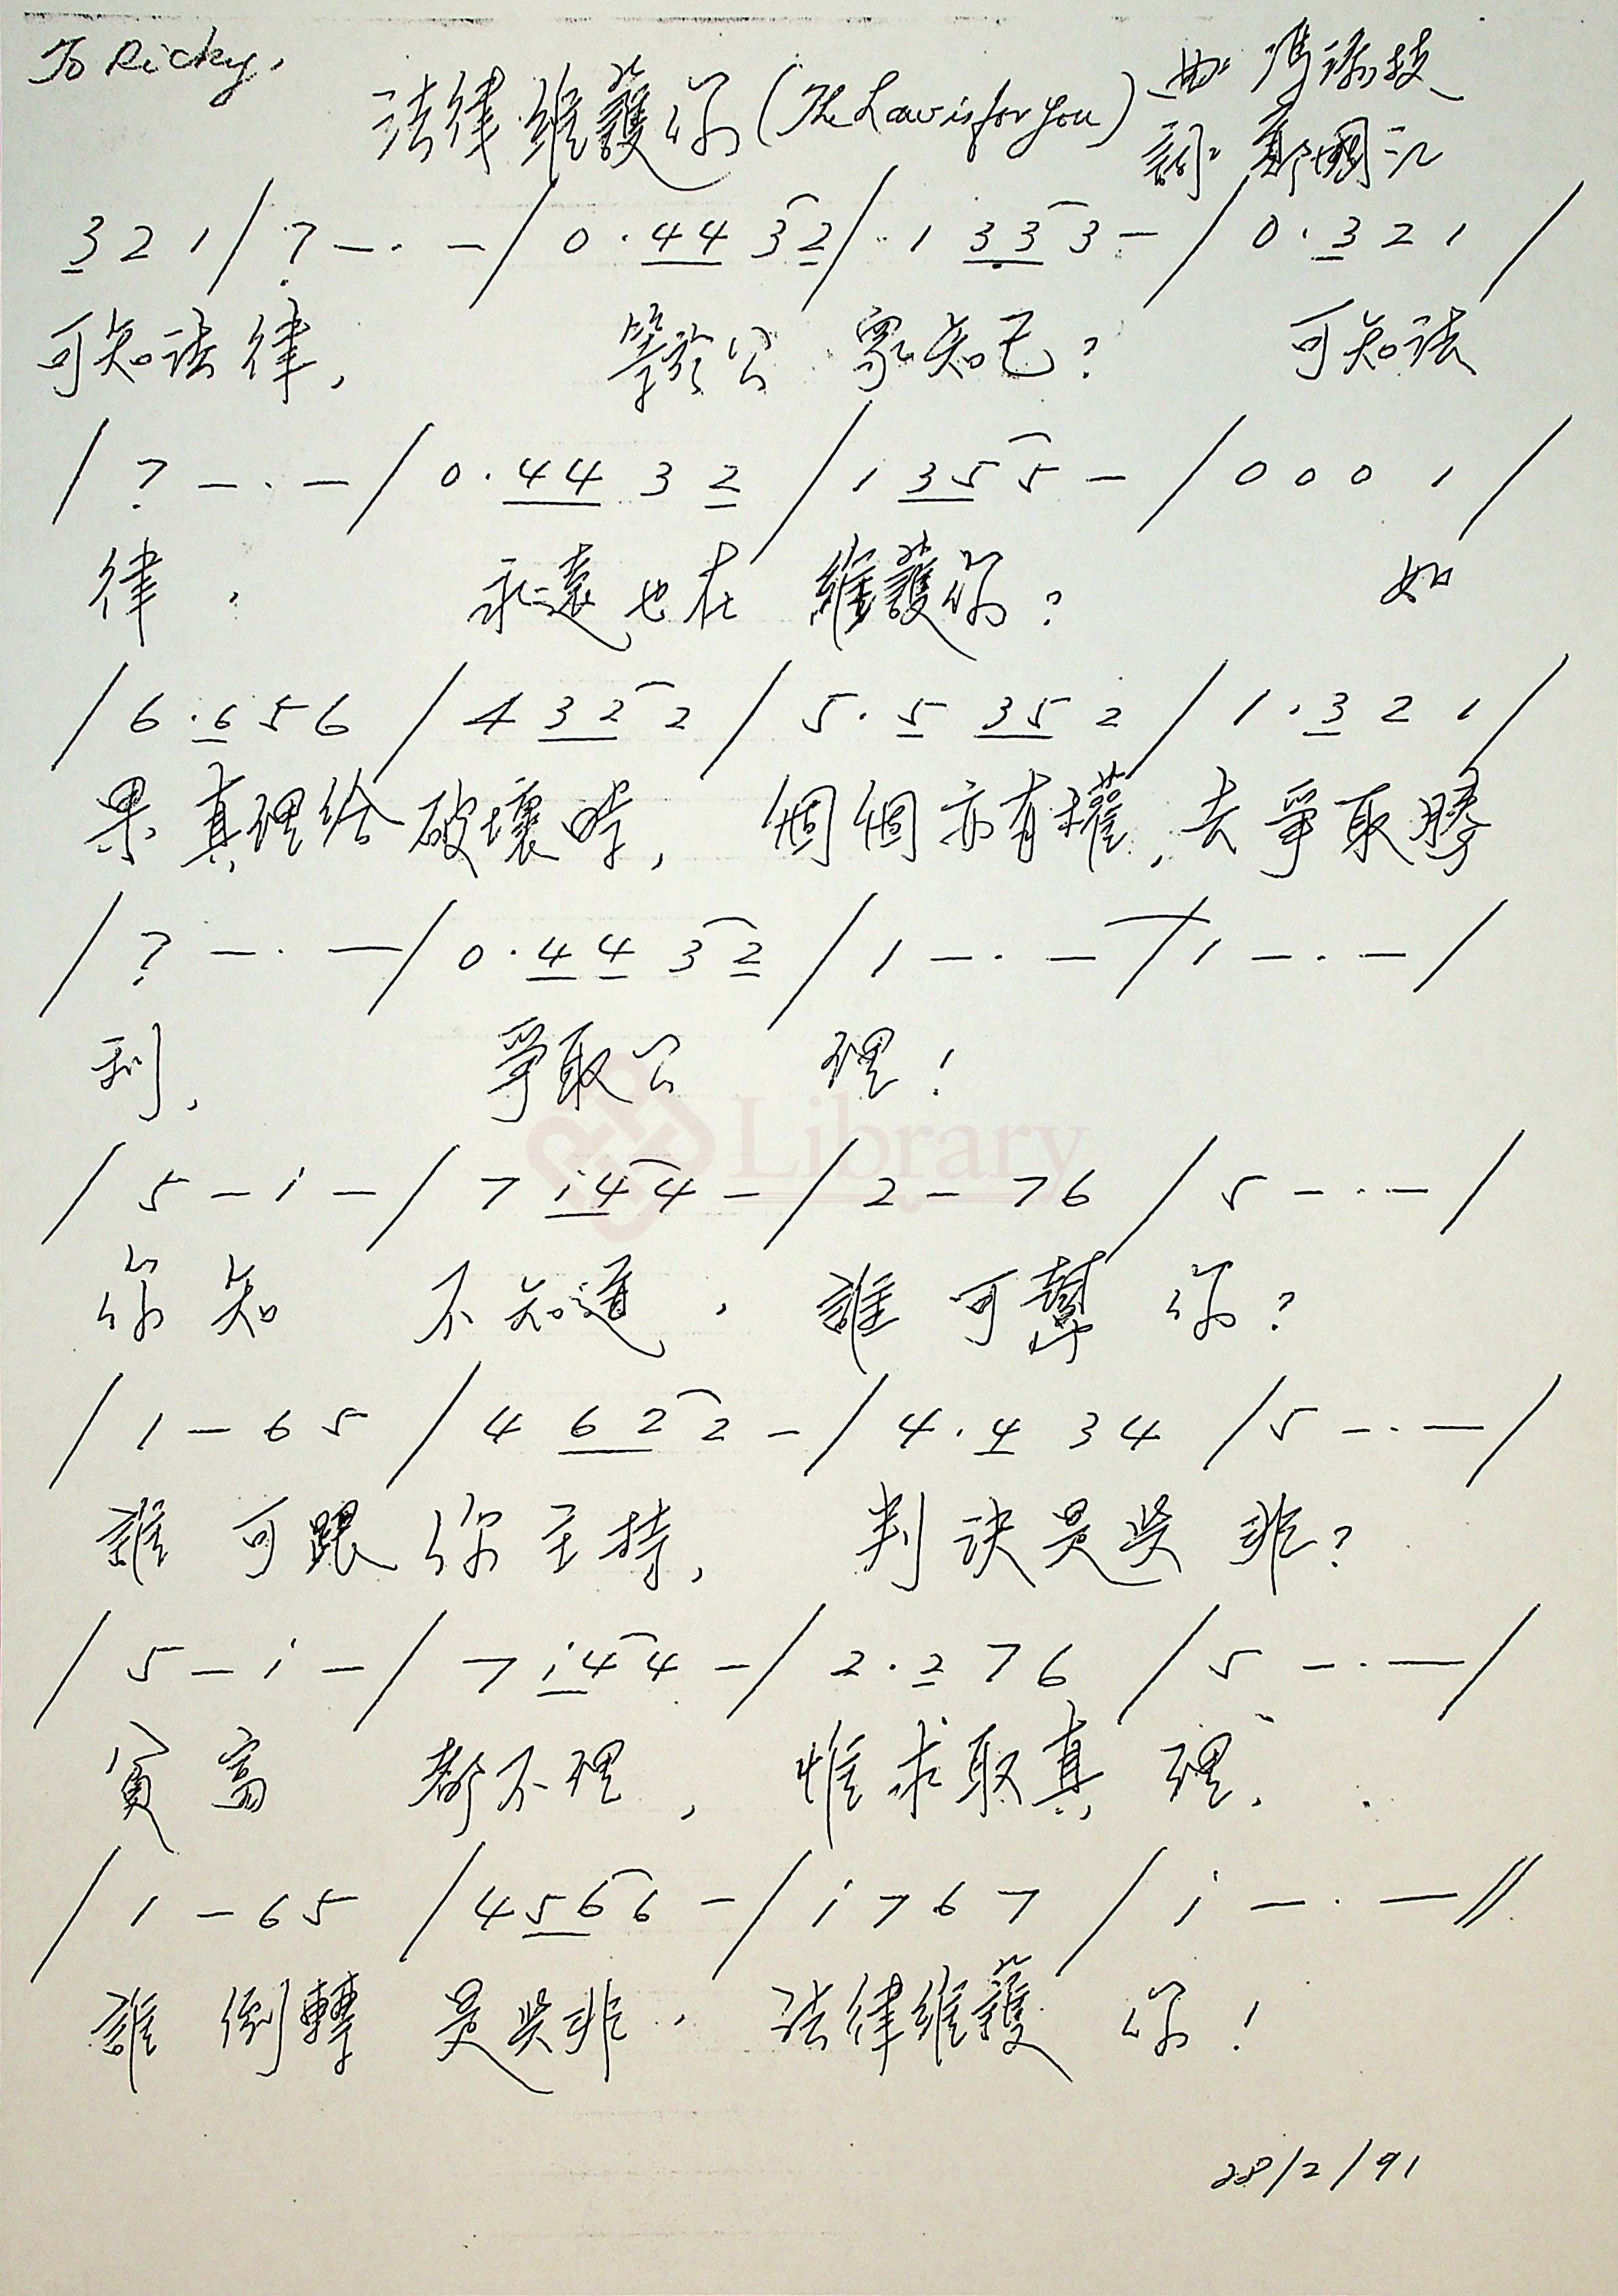 To Ricky,
法律維護你 (The Law is for you) 曲: 馮添枝
詞: 鄭國江
3 2 1 / 7 — · — / 0 · 4 4 3 2 / 1 3 3 3 — / 0 · 3 2 1 /
可知法律, 等於公眾知己? 可知法
/ 7 — · — / 0 · 4 4 3 2 / 1 3 5 5 — / 0 0 0 1 /
律, 永遠也在維護你? 如
/ 6 · 6 5 6 / 4 3 2 2 / 5 · 5 3 5 2 / 1 · 3 2 1 /
果真理給破壞時, 個個亦有權, 去爭取勝
/ 7 — · — / 0 · 4 4 3 2 / 1 — · — / 1 — · — /
利, 爭取公理!
Library
/ 5 — i — / 7 i 4 4 — / 2 — 7 6 / 5 — · — /
你知不知道, 誰可幫你?
/ 1 — 6 5 / 4 6 2 2 — / 4 · 4 3 4 / 5 — · — /
誰可跟你主持, 判決是與非?
/ 5 — i — / 7 i 4 4 — / 2 · 2 7 6 / 5 — · — /
貧富都不理, 惟求取真理.
/ 1 — 6 5 / 4 5 6 6 — / i 7 6 7 / i — · — //
誰倒轉是與非, 法律維護你!
28/2/91